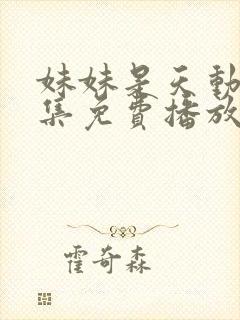 妹妹是天動
集免費播放
霍奇森